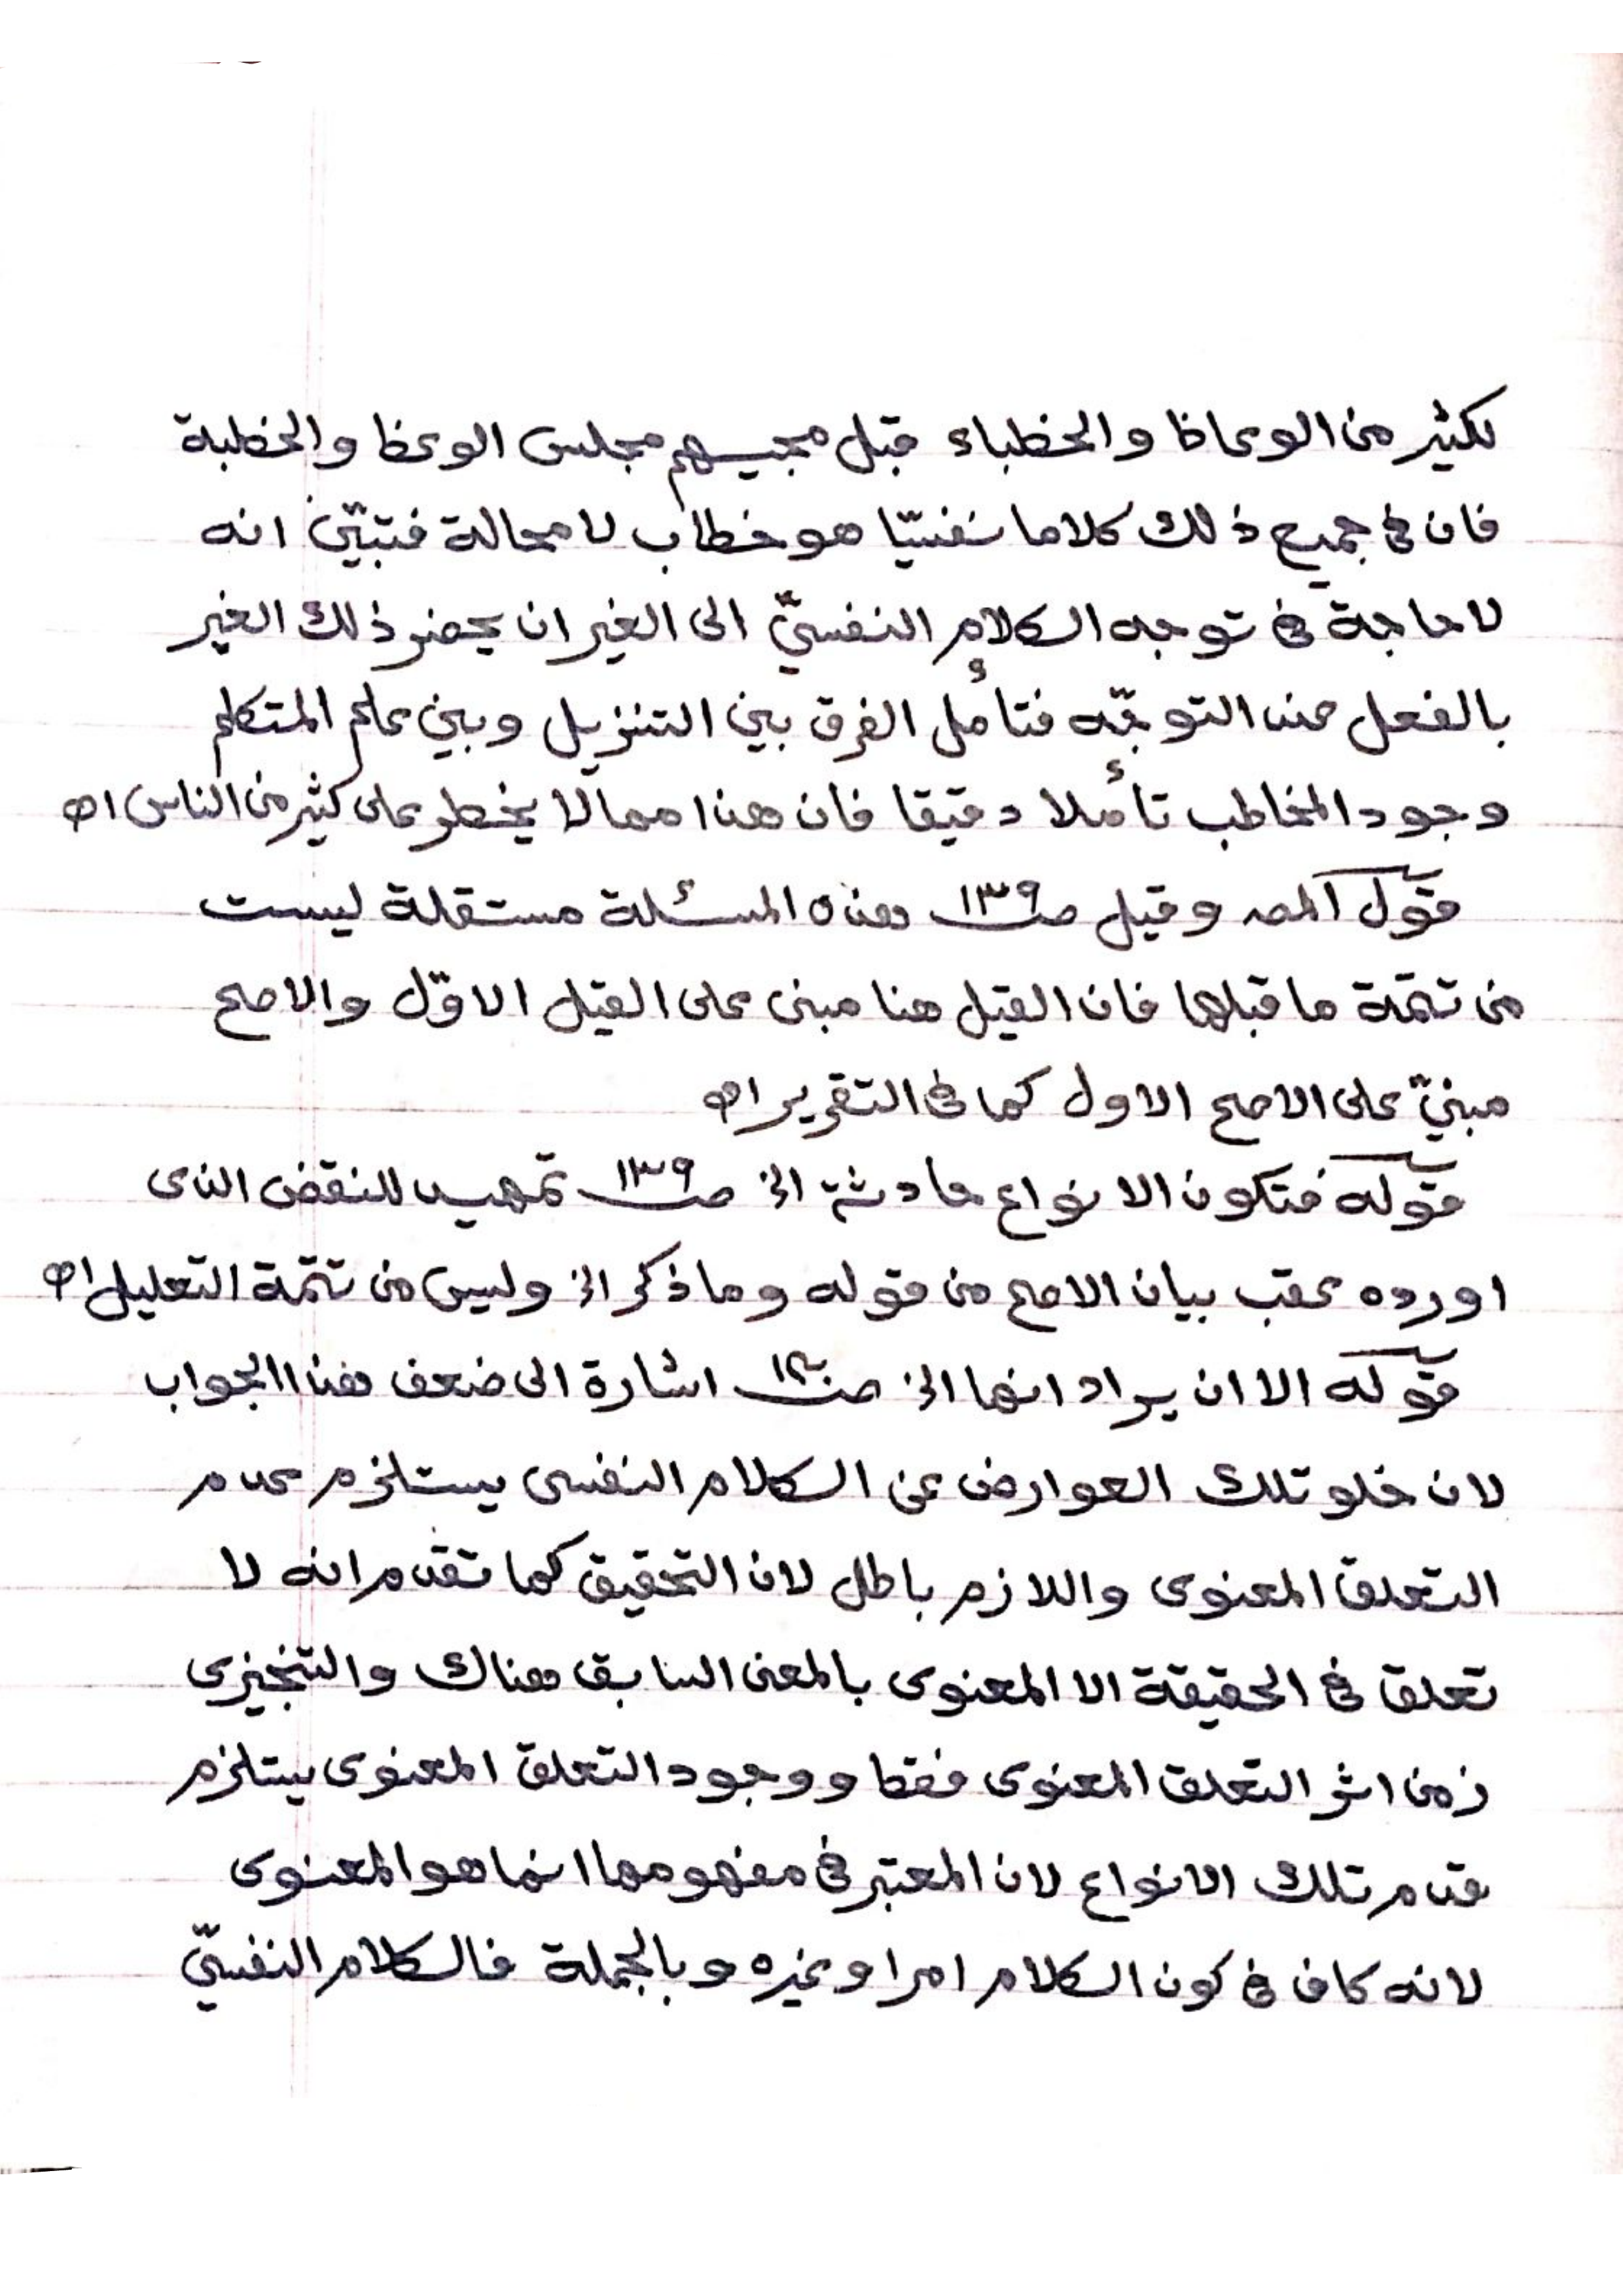 لكثير من الوعاظ والخطباء قبل مجيبهم مجلس الوعظ والخطبة
فان فى جميع ذلك كلاما نفسيّا هو خطاب لا محالة فتبيّن انه
لا حاجة فى توجه الكلام النفسىّ الى الغير ان يحضر ذلك الغير
بالفعل عند التوجّه فتأمل الفرق بين التنزيل وبين علم المتكلم
وجود المخاطب تأملا دقيقا فان هذا مما لا يخطر على كثير من الناس اه
قول المصـ وقيل صـ١٣٩ هذه المسئلة مستقلة ليست
من تتمّة ما قبلها فان القيل هنا مبنى على القيل الاوّل والاصح
مبنىّ على الاصح الاول كما فى التقرير اه
قوله فتكون الانواع حادثة الخ صـ١٣٩ تمهيد للنقض الذى
اورده عقب بيان الاصح من قوله وما ذكر الخ وليس من تتمّة التعليل اه
قوله الا ان يراد انها الخ صـ١٤٠ اشارة الى ضعف هذا الجواب
لان خلو تلك العوارض عن الكلام النفسى يستلزم عدم
التعلق المعنوى واللازم باطل لان التحقيق كما تقدم انه لا
تعلق فى الحقيقة الا المعنوى بالمعنى السابق هناك والتنجيزى
زمن اثر التعلق المعنوى فقط ووجود التعلق المعنوى يستلزم
قدم تلك الانواع لان المعتبر فى مفهومها انما هو المعنوى
لانه كاف فى كون الكلام امرا وغيره وبالجملة فالكلام النفسىّ